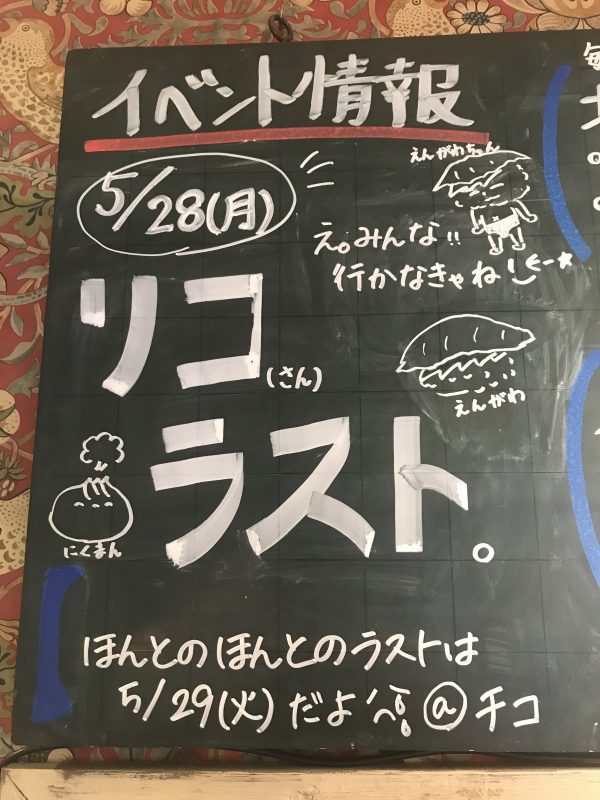 イベント情報
5/28(月)
えんがわちゃん
え。みんな!!
行かなきゃね
リコ(さん)
えんがわ
ラスト。
にくまん
ほんとのほんとのラストは
5/29(火)だよ @チコ